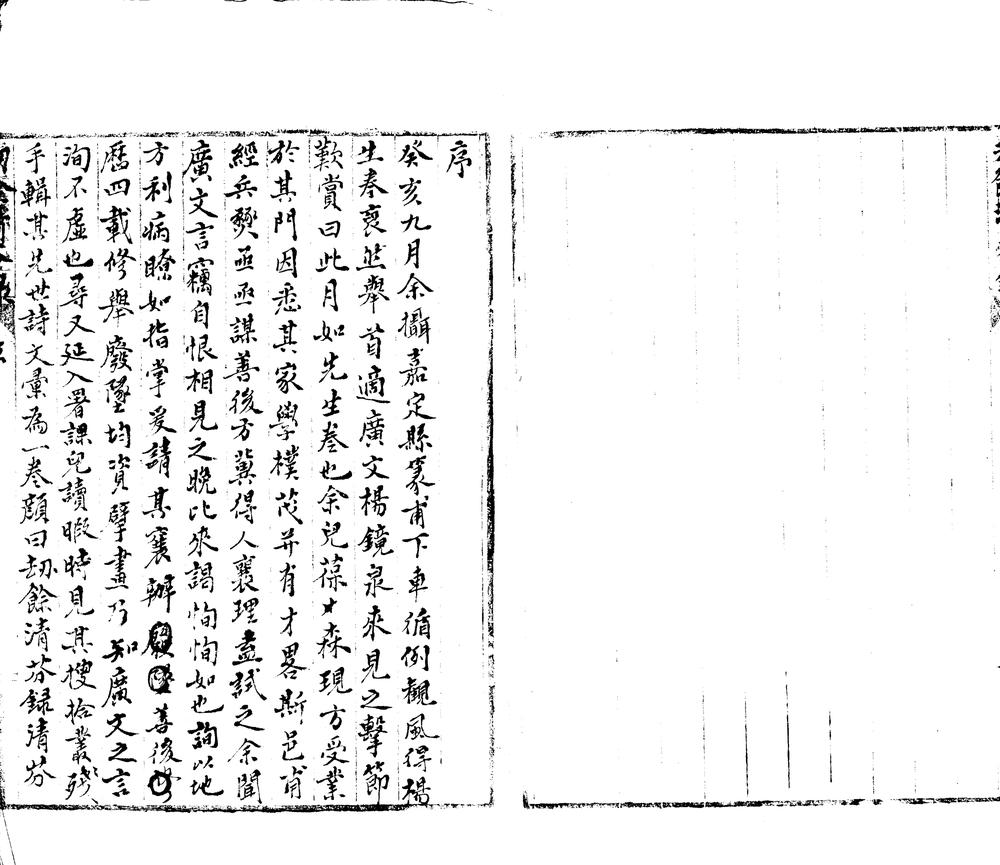 序
癸亥九月余攝嘉定縣篆甫下車循例觀風得楊
生卷裒然舉首適廣文楊鏡泉來見之擊節
歎賞曰此月如先生卷也余兒葆森現方受業
於其門因悉其家學樸茂并有才畧斯邑甫
經兵燹亟亟謀善後方冀得人襄理盍試之余聞
廣文言竊自恨相見之晚比來謁恂恂如也詢以地
方利病瞭如指掌爰請其襄辦善後
歷四載修舉廢墜均資擘畫乃知廣文之言
洵不虛也尋又延入署課兒讀暇時見其搜拾叢殘
手輯其先世詩文彙為一卷顏曰劫餘清芬錄清芬